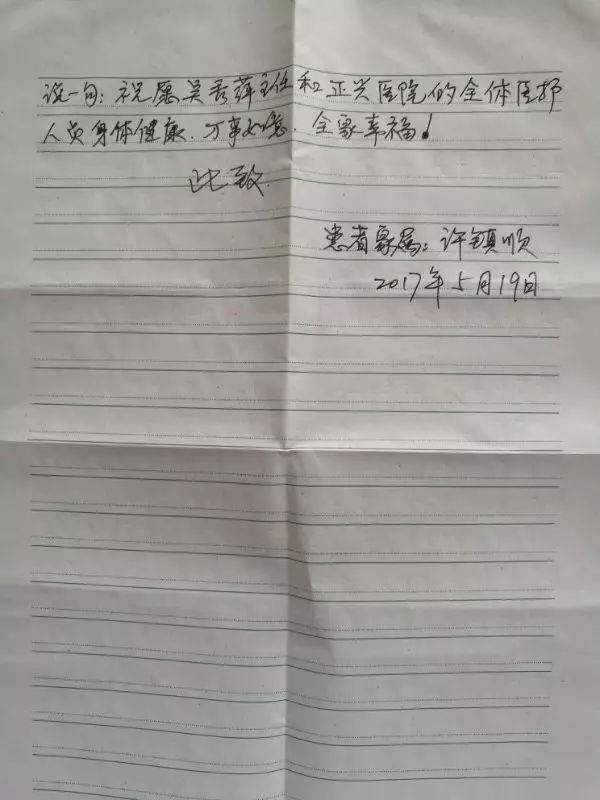 说一句：祝愿吴秀萍主任和正兴医院的全体医护
人员身体健康、万事如意、全家幸福！
此致
患者家属：许镇顺
2017年5月19日